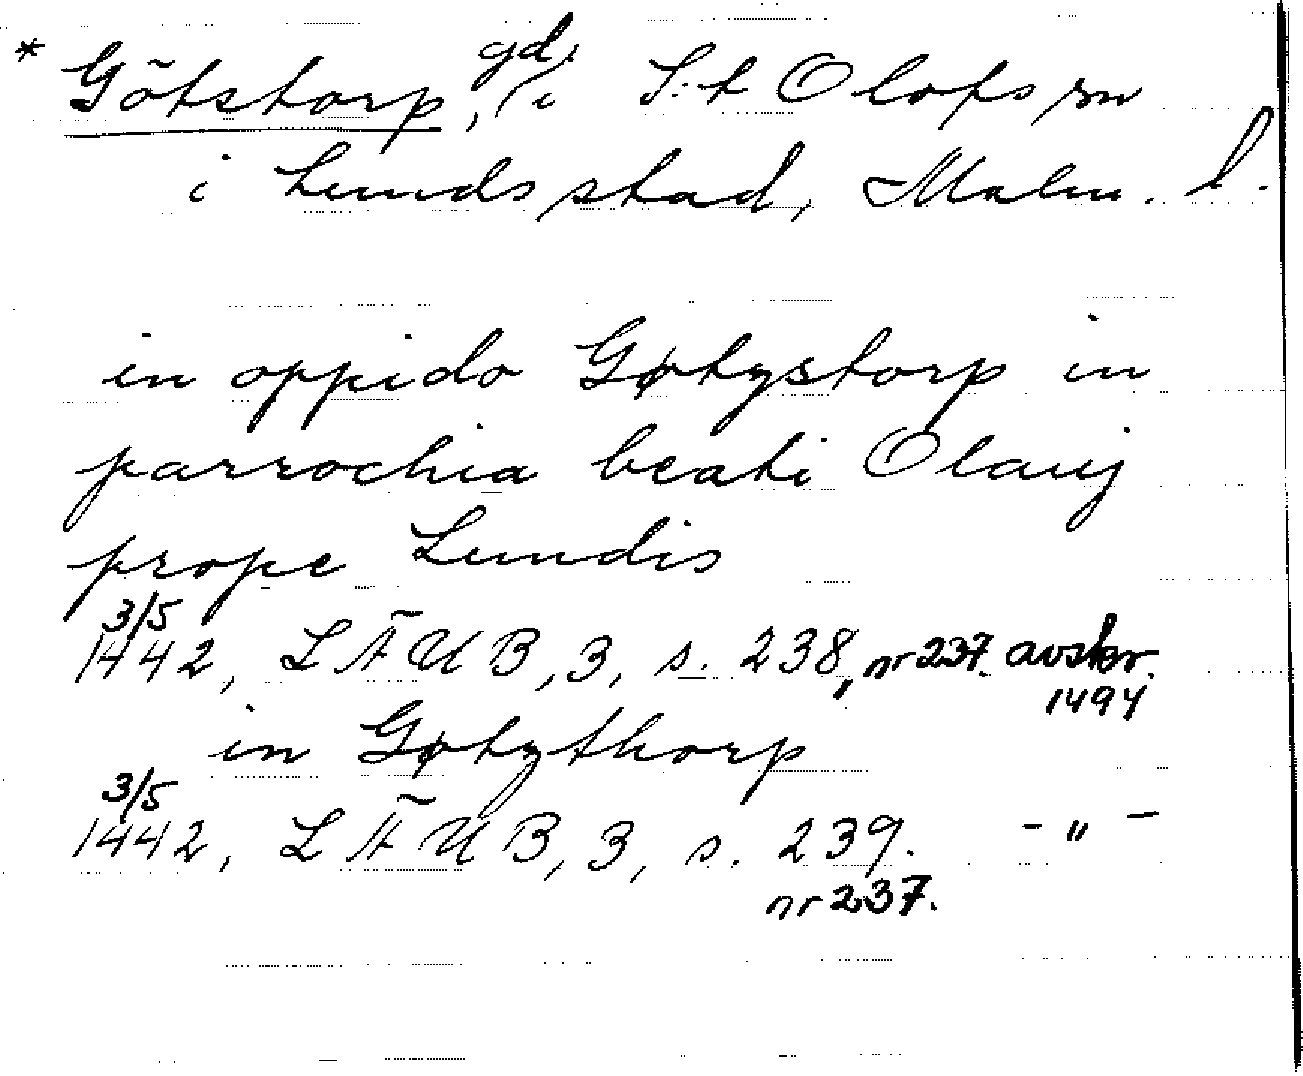 * Götstorp, gd, i S:t Olofs sn
i Lunds stad, Malm. l.
in oppido Gøtzstorp in
parrochia beati Olauj
prope Lundis
3/5
1442, LÄUB, 3, s. 238, nr 237. avskr.
1494
in Gøtzthorp
3/5
1442, LÄUB, 3, s. 239. - " -
nr 237.